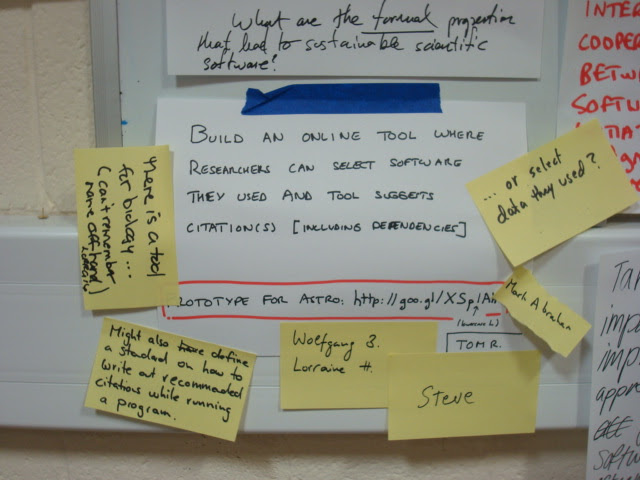 What are the formal properties
that lead to sustainable scientific
software?
BUILD AN ONLINE TOOL WHERE
RESEARCHERS CAN SELECT SOFTWARE
THEY USED AND TOOL SUGGESTS
CITATION(S) [INCLUDING DEPENDENCIES]
PROTOTYPE FOR ASTRO: http://goo.gl/XSplAn
TOM R.
There is a tool
for biology...
(can't remember
name off-hand)
... or select
data they used?
Mark Abraham
Might also have define
a standard on how to
write out recommended
citations while running
a program.
Wolfgang B.
Lorraine H.
Steve
INTER
COOPER
BETW
SOFTW